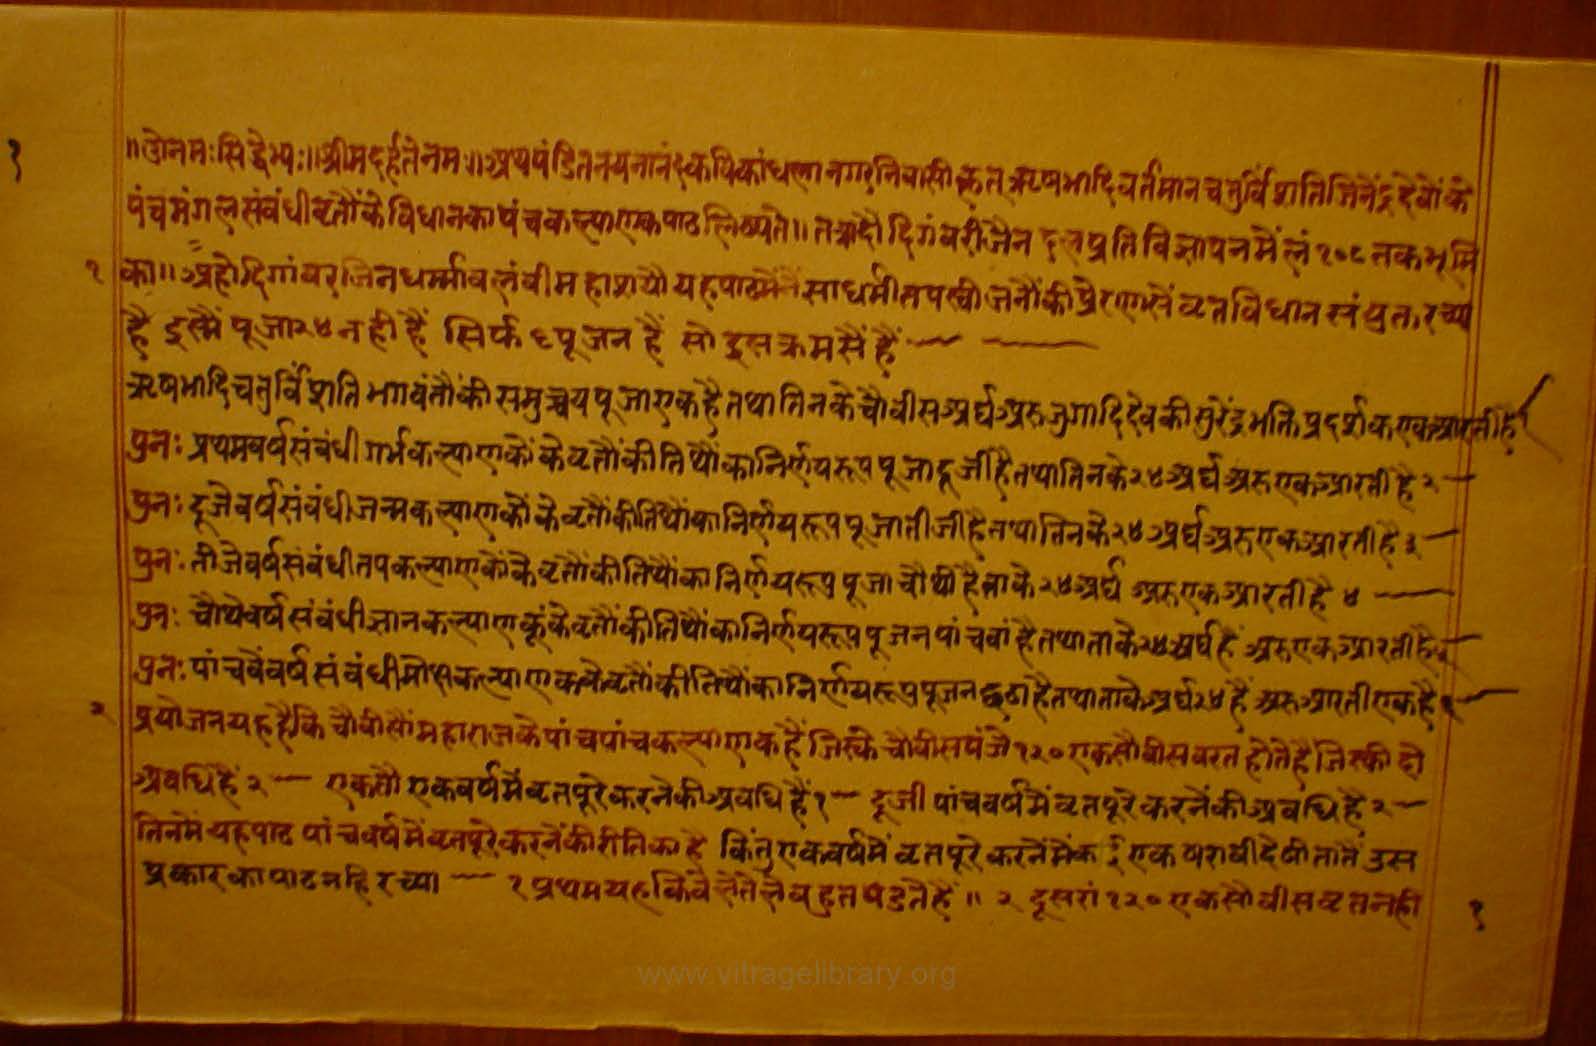 १
॥ॐनमःसिद्धेभ्यः॥श्रीमदर्हतेनमः॥अथपंडितनयनानंदकविकांधलानगरनिवासीकृतऋषभादिवर्तमानचतुर्विंशतिजिनेंद्रदेवोंके
पंचमंगलसंबंधीव्रतौंकेविधानकापंचकल्याणकपाठलिख्यते॥तत्रादौदिगंबरीजैन प्रतिविज्ञापनमेंलं१०८तकभूमि
१ का॥अहोदिगांबरजिनधर्मावलंबीमहाशयौयहपाठमैंनेंसाधर्मीतपस्वीजनौंकीप्रेरणासेंव्रतविधानसंयुत,रच्या
है इस्मैं पूजा२४नहीहैं सिर्फ ६पूजन हैं सो इसक्रमसैंहैं
ऋषभादिचतुर्विंशतिभगवंतौंकीसमुच्चयपूजाएकहैतथातिनकेचौवीसअर्घअरुजुगादिदेवकीसुरेंद्रभक्तिप्रदर्शकएकआरतीहै१
पुनः प्रथमवर्षसंबंधीगर्भकल्याणकोंकेव्रतौंकीतिथौंकानिर्णयरूपपूजादूजीहैतथातिनके२४अर्घअरुएकआरतीहै२
पुनः दूजेवर्षसंबंधीजन्मकल्याणकोंकेव्रतौंकीतिथौंकानिर्णयरूपपूजातीजीहैतथातिनके२४अर्घअरुएकआरतीहै३
पुनः तीजेवर्षसंबंधीतपकल्याणकोंकेव्रतौंकीतिथौंकानिर्णयरूपपूजा चौथीहैताके२४अर्घ अरुएकआरतीहै ४
पुनः चौथेवर्षसंबंधीज्ञानकल्याणकूंकेव्रतौंकीतिथौंकानिर्णयरूपपूजनपांचवांहैतथाताके२४अर्घहैं अरुएकआरतीहै५
पुनः पांचवेंवर्षसंबंधीमोक्षकल्याणककेव्रतौंकीतिथौंकानिर्णयरूपपूजनछठाहैतथाताकेअर्घ२४हैं अरुआरतीएकहै६
२ प्रयोजनयहहैकिचौवीसौंमहाराजकेपांचपांचकल्याणकहैंजिस्के १२०एकसौवीसवरतहोतेहैंजिस्कीदो
अवधिहैं२ एकतौएकवर्षमैंव्रतपूरेकरनेकीअवधिहैं१ दूजीपांचवर्षमेंव्रतपूरेकरनेंकीअवधिहै२
तिनमेंयहपाठ पांचवर्षमेंव्रतपूरेकरनेंकीरीतिकाहै किंतुएकवर्षमेंव्रतपूरेकरनेंमेंकई एकषराबीदेषीतातेंउस
प्रकारकापाठनहिरच्या १प्रथमयह बहुतपडतेहैं॥ २दूसरां१२०एकसौवीसव्रतनही
१
www.vitragelibrary.org